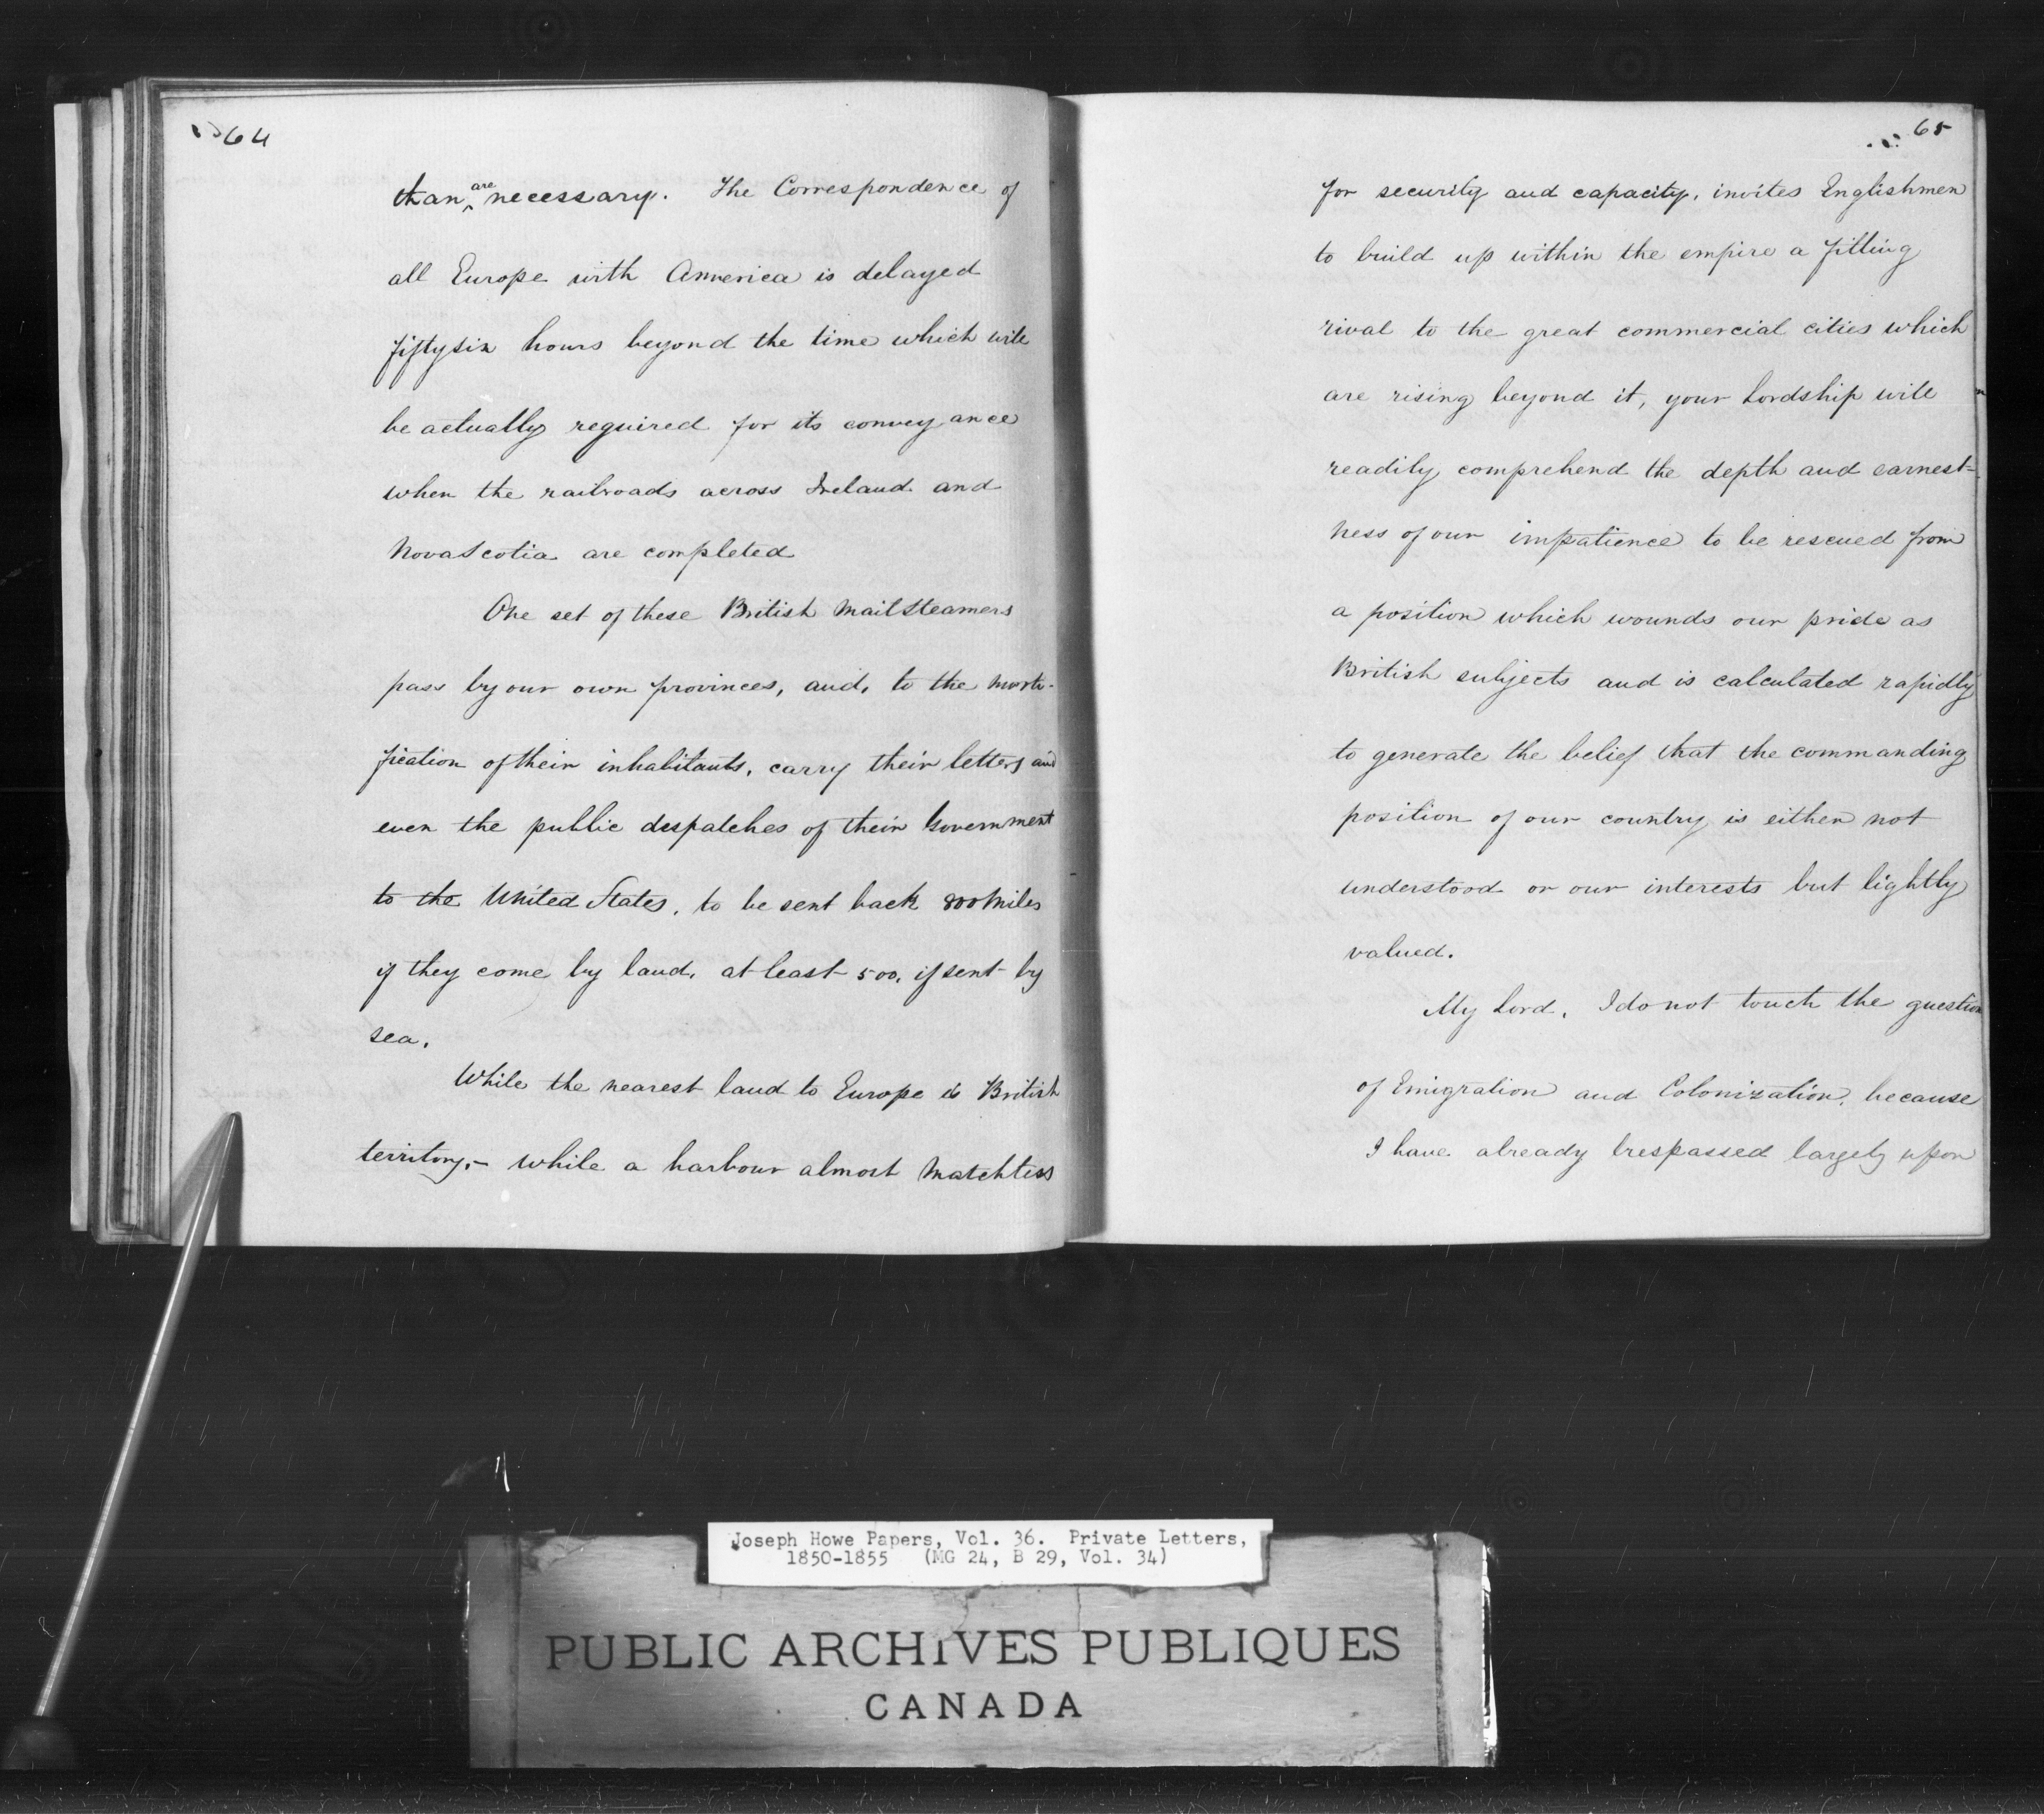 64
than are necessary. The Correspondence of
all Europe with America is delayed
fiftysix hours beyond the time which will
be actually required for its conveyance
when the railroads across Ireland and
Nova Scotia are completed
One set of these British Mail Steamers
pass by our own provinces, and, to the morti-
fication of their inhabitants, carry their letters and
even the public despatches of their Government
to the United States, to be sent back 800 Miles
if they come by land, at least 500, if sent by
sea.
While the nearest land to Europe is British
territory,- while a harbour almost Matchless
65
for security and capacity, invites Englishmen
to build up within the empire a fitting
rival to the great commercial cities which
are rising beyond it, your Lordship will
readily comprehend the depth and earnest=
ness of our impatience to be rescued from
a position which wounds our pride as
British subjects and is calculated rapidly
to generate the belief that the commanding
position of our country is either not
understood or our interests but lightly
valued.
My Lord, I do not touch the question
of Emigration and Colonization, because
I have already trespassed largely upon
Joseph Howe Papers, Vol. 36. Private Letters,
1850-1855 (MG 24, B 29, Vol. 34)
PUBLIC ARCHIVES PUBLIQUES
CANADA